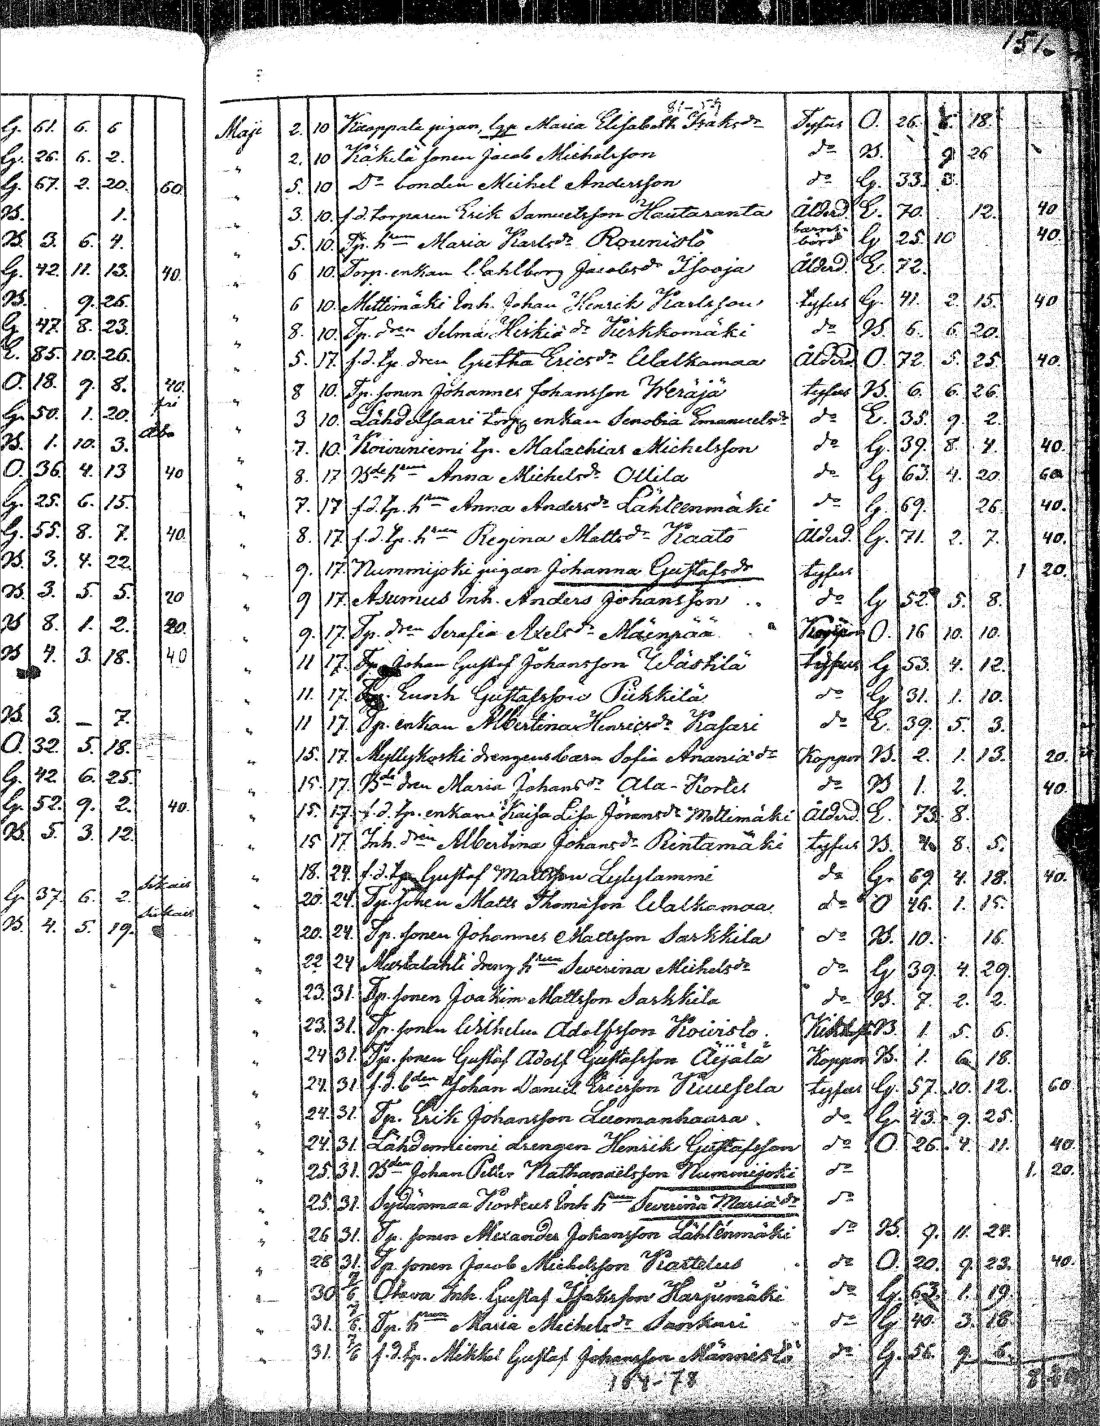 151.
G. 61. 6. 6
G. 26. 6. 2.
G. 67. 2. 20. 60
B. 1.
B. 3. 6. 4.
G. 42 11. 13. 40.
B. 9. 26.
G. 47. 8. 23.
E. 85. 10. 26.
O. 18. 9. 8. 40.
G. 50. 1. 20. fri
B. 1. 10. 3. Abo
O. 36. 4. 13 40
G. 25. 6. 15.
G. 55. 8. 7. 40.
B. 3. 4. 22.
B. 3. 5. 5. 20
B 8. 1. 2. 20.
B 4. 3. 18. 40
B. 3. — 7.
O. 32. 5. 18.
G. 42 6. 25.
G. 52. 9. 2. 40.
B. 5. 3. 12.
G. 37. 6. 2.
B. 4. 5. 19.
81-59
Maji 2. 10 pigan Maria Elisabeth Isaksdr Tyfus O. 26. 6. 18.
" 2. 10 Käkelä sonen Jacob Michelsson do B. 9 26
" 5. 10 Do bonden Michel Andersson do G. 33. 3.
" 3. 10. f.d. torparen Erik Samuelsson Hautaranta Ålderd. E. 70. 12. 40
" 5. 10. Tp. hrun Maria Karlsdr Rounistö barnsbörd G 25. 10 40.
" 6 10. Torp. enkan Jacobsdr Isooja Ålderd. E. 72.
" 6 10. Mettimäki Inh. Johan Henrik Karlsson tyfus G. 41. 2. 15. 40
" 8. 10. Tp. dren Selma Heikiädr Kierkkomäki do B 6. 6. 20.
" 5. 17. f.d. tp. dren Gretha Ericsdr Walkamaa Ålderd. O. 72. 5. 25. 40.
" 8 10. Tp. sonen Johannes Johansson Weräjä tyfus B. 6. 6. 26.
" 3 10. Lähdessaari torp. enkan Senobia Emanuelsdr do E. 35. 9. 2.
" 7. 10. Koivuniemi tp. Malachias Michelsson do G. 39. 8. 4. 40.
" 8. 17 Bde hrun Anna Michelsdr Ollila do G 63. 4. 20. 60
" 7. 17 f.d. tp. hrun Anna Andersdr Lähteenmäki do G. 69. 26. 40.
" 8. 17. f.d. tp. hrun Regina Mattsdr Kaato Ålderd. G. 71. 2. 7. 40.
" 9. 17. Nummijoki pigan Johanna Gustafsdr tyfus 1 20.
" 9 17. Asumus Inh. Anders Johansson do G 52. 5. 8.
" 9. 17. Tp. dren Serafia Axelsdr Mäenpää Koppor O. 16 10. 10.
" 11 17. Tp. Johan Gustaf Johansson Wäskilä tyfus G 53. 4. 12.
" 11. 17. Tp. Enoch Gustafsson Pukkilä do G 31. 1. 10.
" 11 17. Tp. enkan Albertina Henricsdr Kasari do E. 39. 5. 3.
" 15. 17. Myllykoski drengens barn Sofia Ananiädr Koppor B. 2. 1. 13. 20.
" 15. 17. Bde dren Maria Johansdr Ala-Kortes do B 1. 2. 40.
" 15. 17. f.d. tp. enkan Kaisa Lisa Jöransdr Mettimäki Ålderd. E. 73. 8.
" 15 17. Inh. dren Albertina Johansdr Rintamäki tyfus B. 4. 8. 5.
" 18. 24. f.d. tp. Gustaf Mattsson Lylylammi do G. 69. 4. 18. 40.
" 20. 24. Tp. sonen Matts Thomasson Walkamaa do O 46. 1. 15.
" 20. 24. Tp. sonen Johannes Mattsson Sarkkila do B. 10. 16.
" 22 24 Mustalahti dreng hrun Severina Michelsdr do G 39. 4. 29.
" 23. 31. Tp. sonen Joakim Mattsson Sarkkila do B. 7. 2. 2.
" 23. 31. Tp. sonen Wilhelm Adolfsson Koivisto. B. 1. 5. 6.
" 24 31. Tp. sonen Gustaf Adolf Gustafsson Äijälä Koppor B. 1. 6 18.
" 24. 31. f.d. bden Johan Daniel Ericsson Kuusela tyfus G. 57. 10. 12. 60
" 24. 31. Tp. Erik Johansson Luomanhaara. do G. 43. 9. 25.
" 24. 31. Lähdeniemi drengen Henrik Gustafsson do O. 26. 4. 11. 40.
" 25. 31. Bden Johan Peter Nathanaelsson Nummijoki do 1. 20.
" 25. 31. Sydänmaa Korteus Inh hrun Severina Mariadr do
" 26 31. Tp. sonen Alexander Johansson Lähtenmäki do B. 9. 11. 24.
" 28 31. Tp. sonen Jacob Michelsson Kattelus do O. 20. 9. 23. 40.
" 30 7/6 Otava Inh. Gustaf Isaksson Harjumäki do G. 63. 1. 19.
" 31. 7/6. Tp. hrun Maria Michelsdr Sarkari do G 40. 3. 18.
" 31. 7/6 f.d. tp. Mikkel Gustaf Johansson Männistö do G. 56. 9. 6.
104-78
8 20